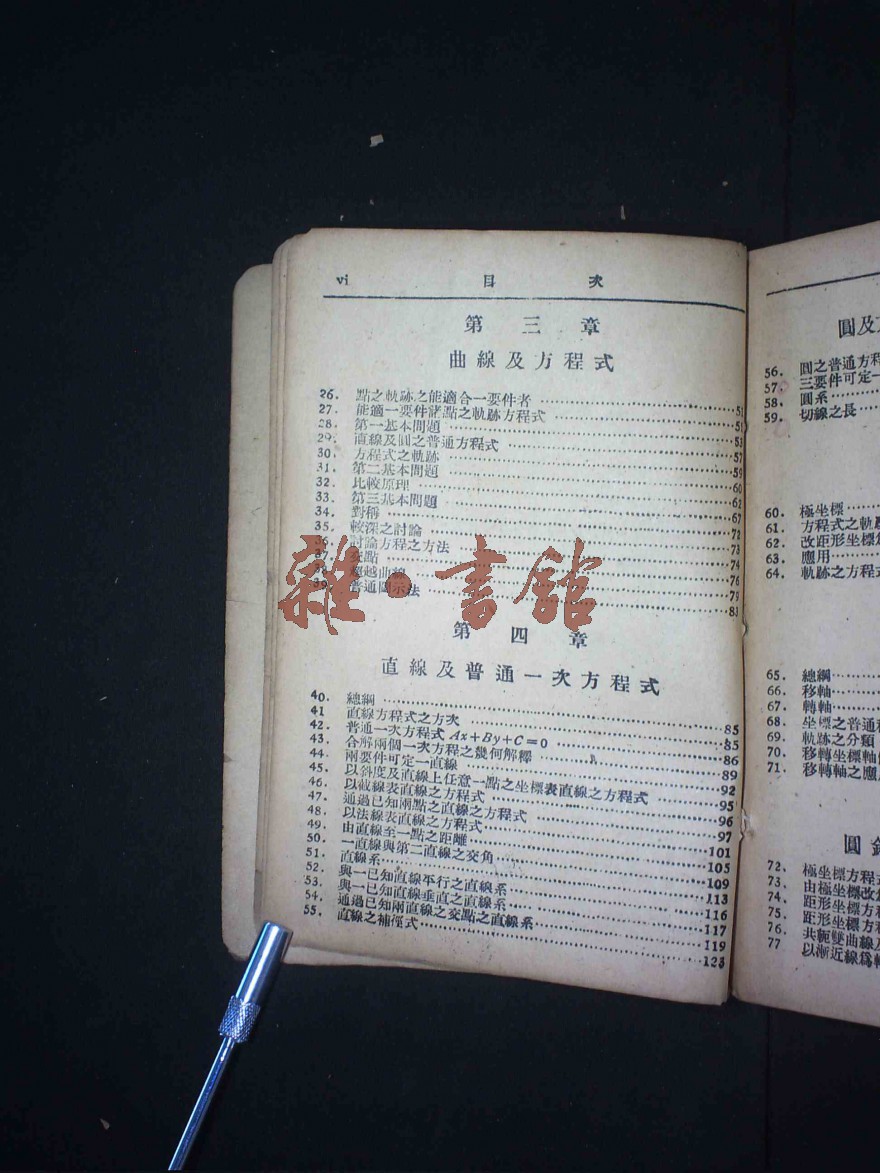 vi 目 次
第 三 章
曲線及方程式
26. 點之軌跡之能適合一要件者 51
27. 能適一要件諸點之軌跡方程式 51
28. 第一基本問題 53
29. 直線及圓之普通方程式 57
30. 方程式之軌跡 59
31. 第二基本問題 60
32. 比較原理 62
33. 第三基本問題 67
34. 對稱 72
35. 較深之討論 73
36. 討論方程之方法 74
37. 交點 76
38. 超越曲線 79
39. 普通圖示法 83
雜·書館
第 四 章
直線及普通一次方程式
40. 總綱 85
41 直線方程式之方次 85
42. 普通一次方程式 Ax+By+C=0 86
43. 合解兩個一次方程之幾何解釋 89
44. 兩要件可定一直線 92
45. 以斜度及直線上任意一點之坐標表直線之方程式 95
46. 以截線表直線之方程式 96
47. 通過已知兩點之直線之方程式 97
48. 以法線表直線之方程式 101
49. 由直線至一點之距離 105
50. 一直線與第二直線之交角 109
51. 直線系 113
52. 與一已知直線平行之直線系 116
53. 與一已知直線垂直之直線系 117
54. 通過已知兩直線之交點之直線系 119
55. 直線之補徑式 123
圓及
56. 圓之普通方程
57. 三要件可定一
58. 圓系
59. 切線之長
60. 極坐標
61. 方程式之軌
62. 改距形坐標
63. 應用
64. 軌跡之方程
65. 總綱
66. 移軸
67. 轉軸
68. 坐標之普通
69. 軌跡之分類
70. 移轉坐標軸
71. 移轉軸之應
圓
72. 極坐標方程式
73. 由極坐標改
74. 距形坐標方
75. 距形坐標方
76. 共軛雙曲線及
77 以漸近線爲